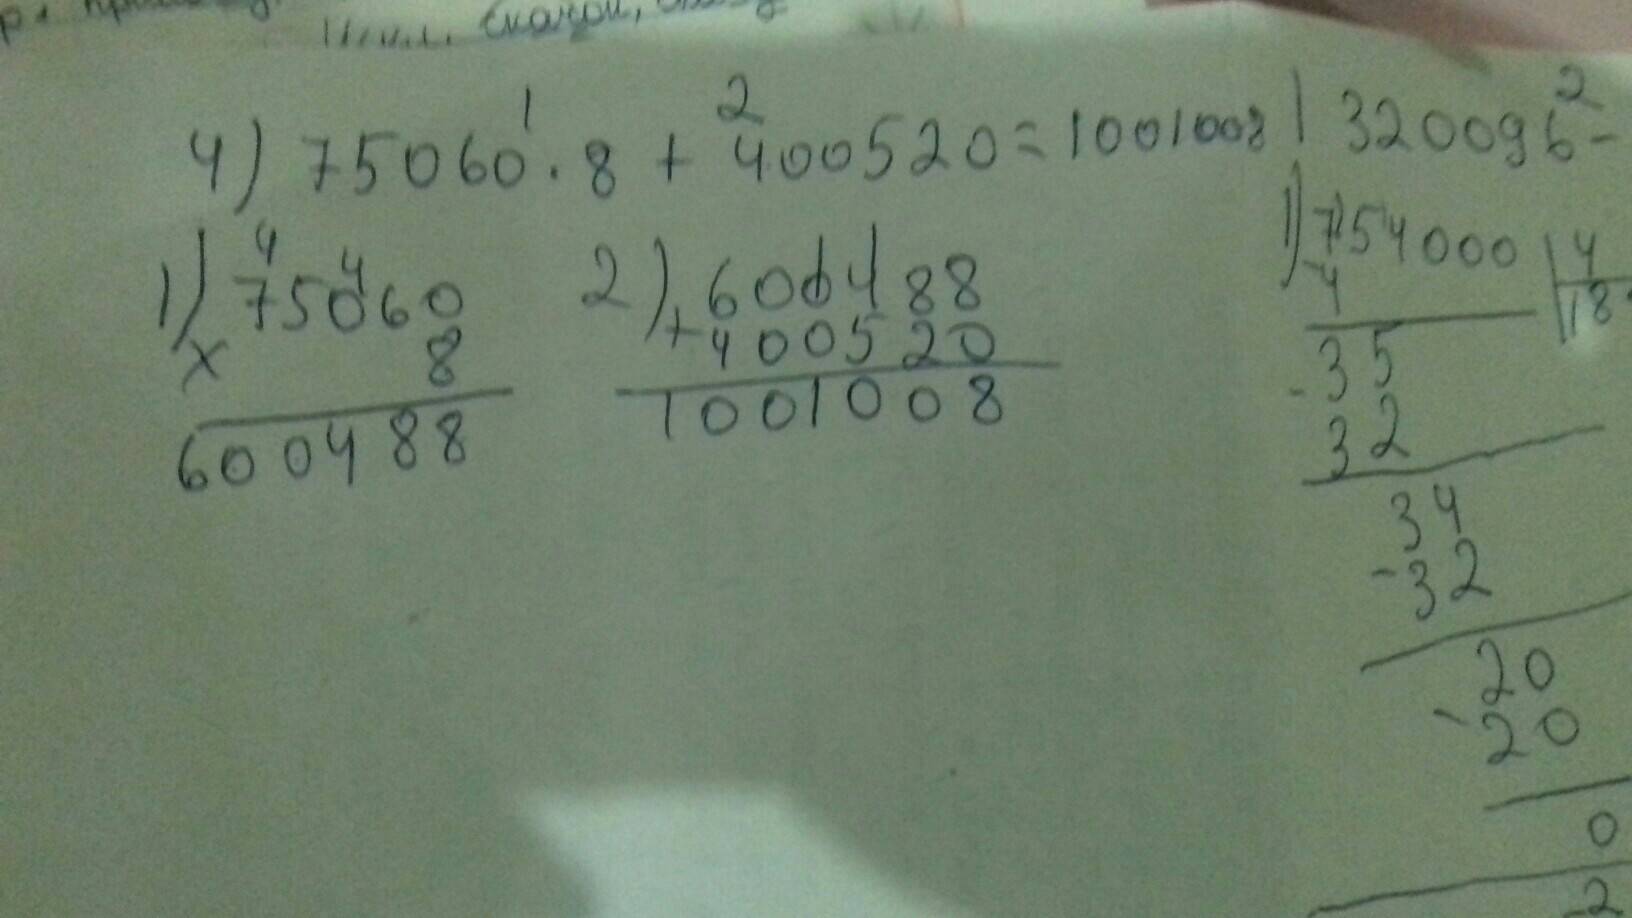 4) 75060 · 8 + 400520 = 1001008
1 2
1) 75060
4 4
× 8
600488
2) 600488
+ 400520
1001008
320096 -
2
1) 754000 4
- 4 18
35
- 32
34
- 32
20
- 20
0
2